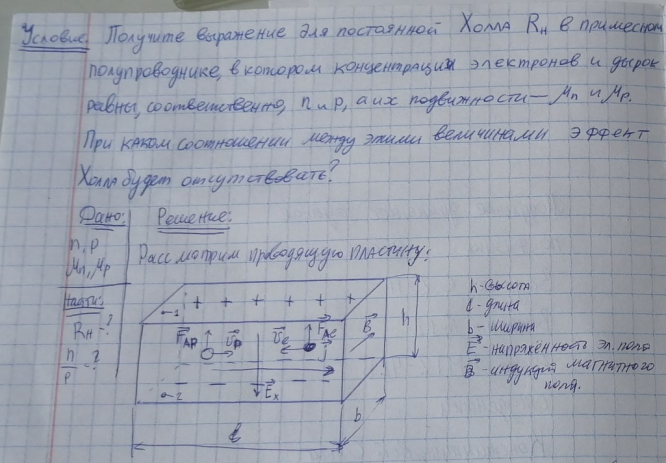 Условие: Получите выражение для постоянной Холла R_H в примесном
полупроводнике, в котором концентрации электронов и дырок
равны, соответственно, n и p, а их подвижности — μ_n и μ_p.
При каком соотношении между этими величинами эффект
Холла будет отсутствовать?
Дано:
n, p
μ_n, μ_p
Найти:
R_H - ?
n/p - ?
Решение:
Рассмотрим проводящую пластину:
+ + + + + +
1
F_Ap v_p v_e F_Ae B h
j
2 E_x
b
l
h - высота
l - длина
b - ширина
E - напряжённость эл. поля
B - индукция магнитного
поля.